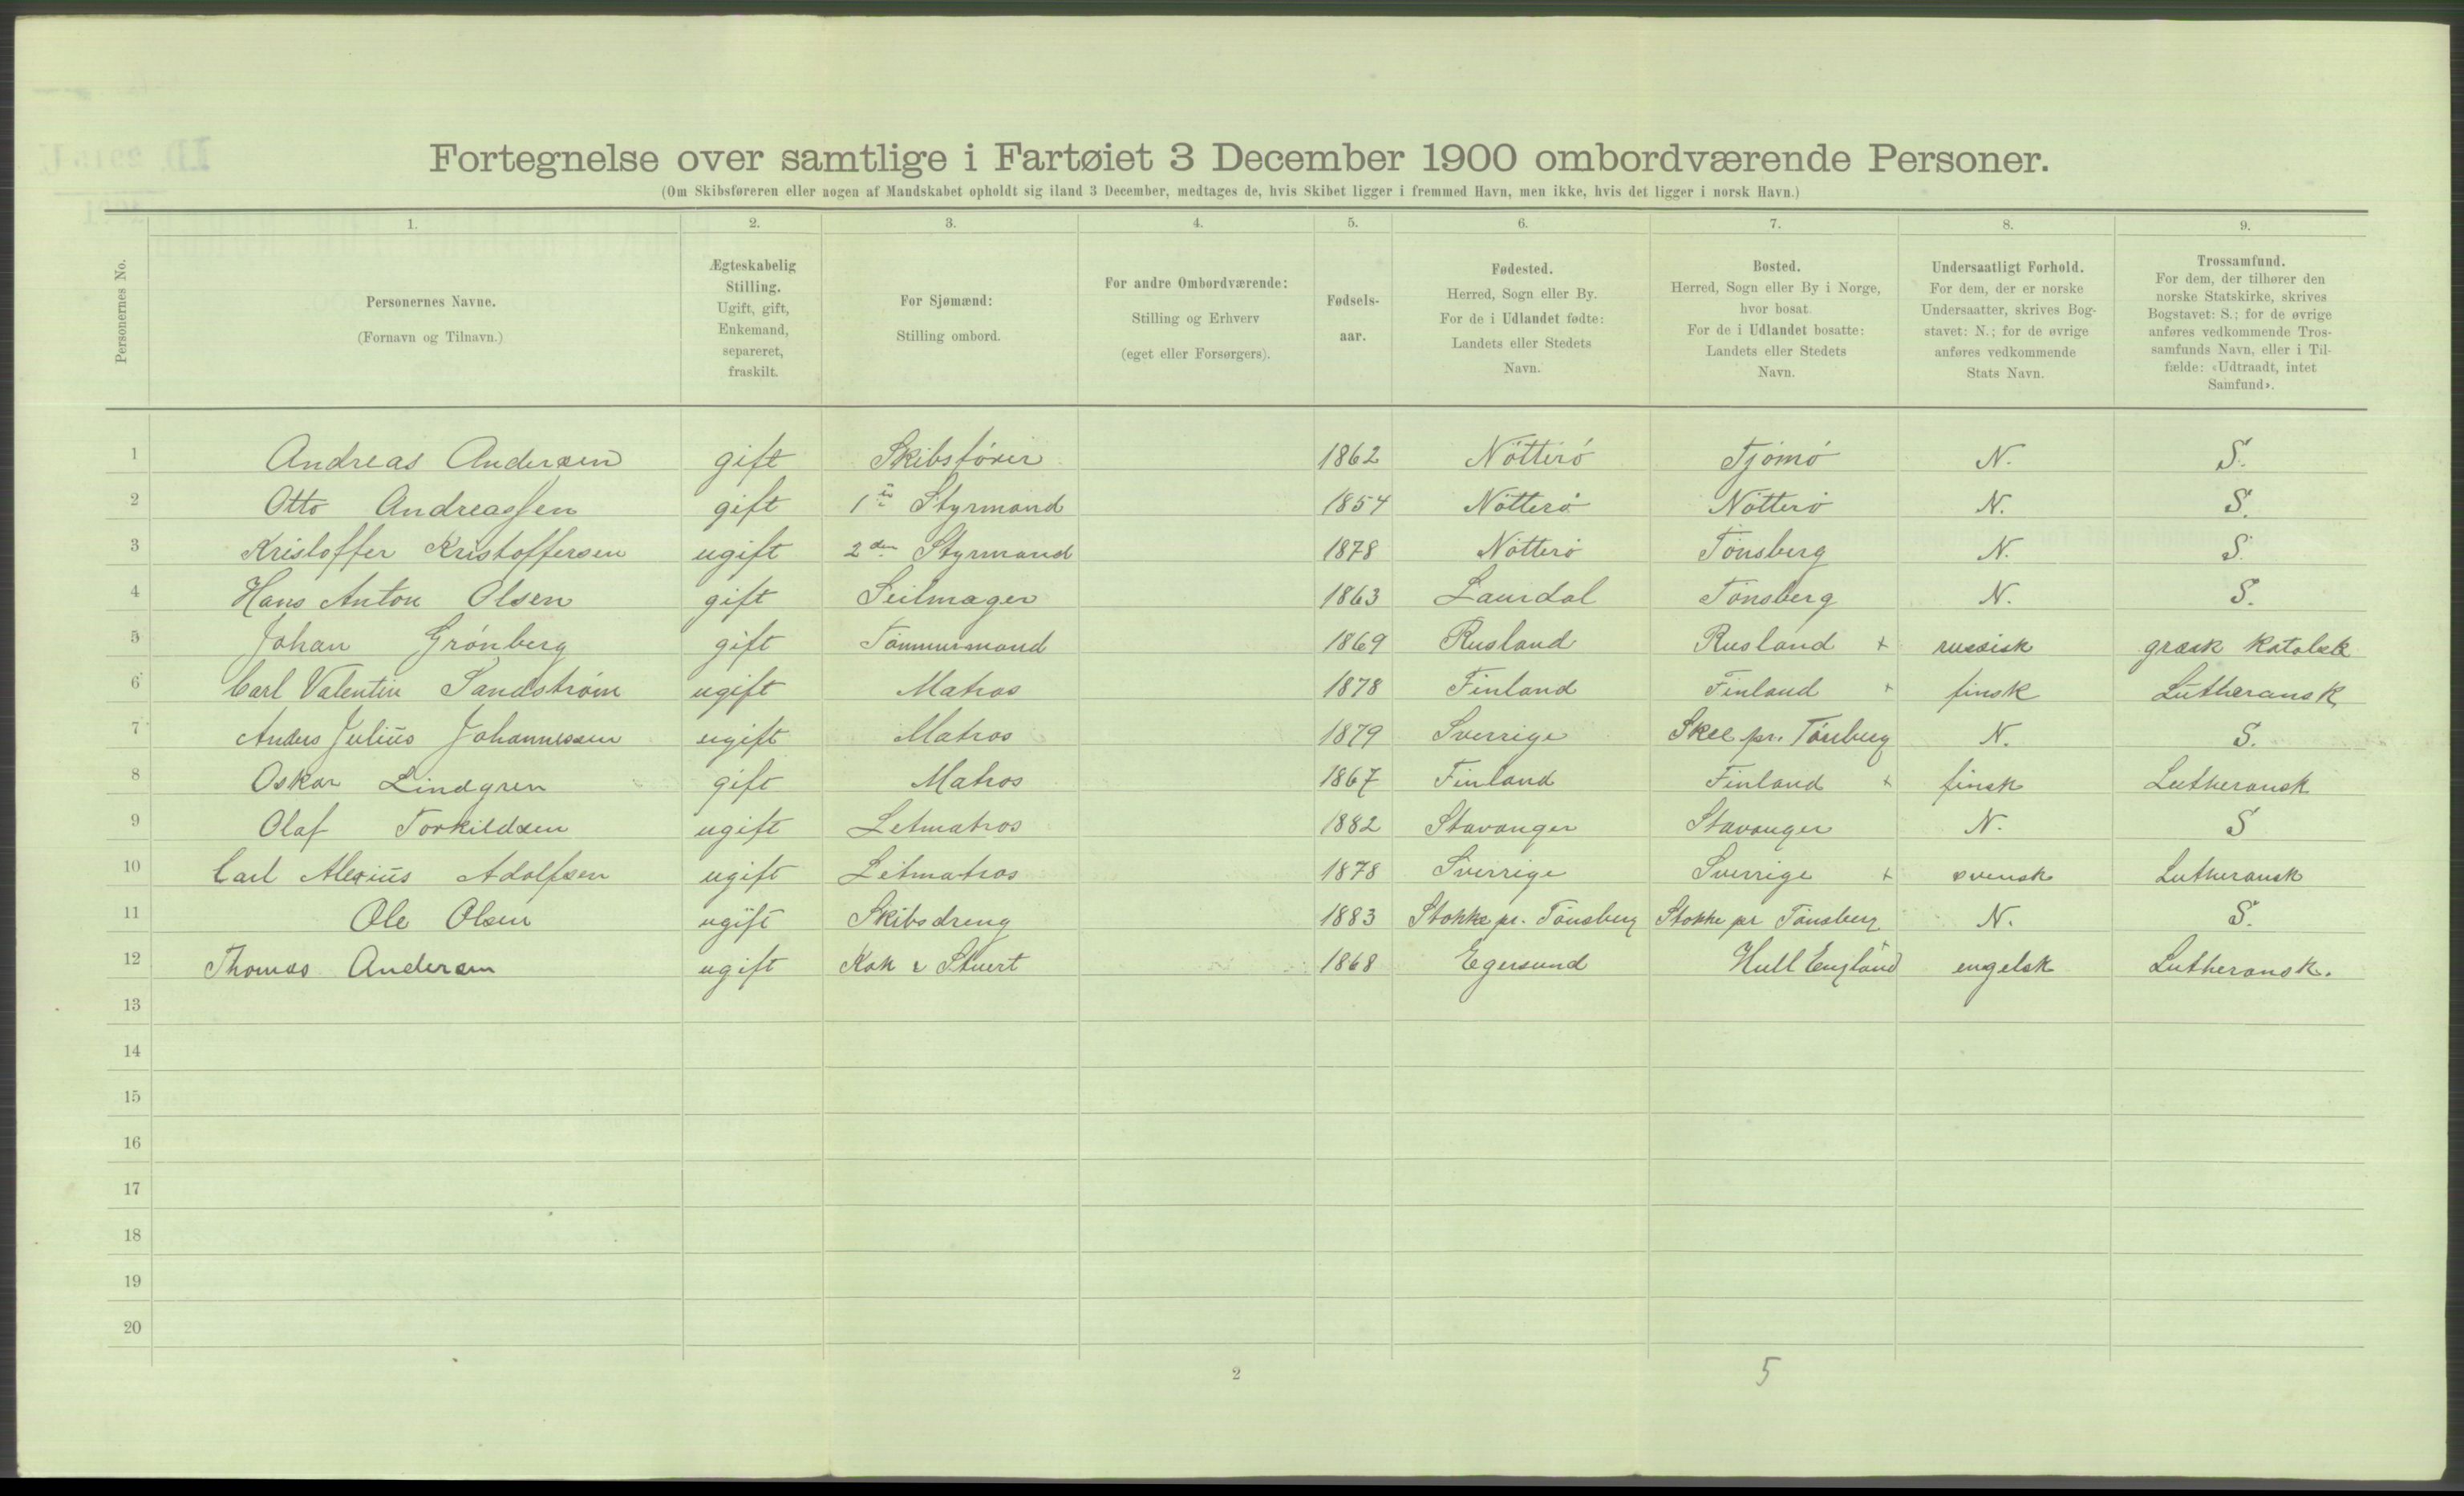 Fortegnelse over samtlige i Fartøiet 3 December 1900 ombordværende Personer.
(Om Skibsføreren eller nogen af Mandskabet opholdt sig iland 3 December, medtages de, hvis Skibet ligger i fremmed Havn, men ikke, hvis det ligger i norsk Havn.)
1. 2. 3. 4. 5. 6. 7. 8. 9.
Personernes No.
Personernes Navne.
(Fornavn og Tilnavn.)
Ægteskabelig
Stilling.
Ugift, gift,
Enkemand,
separeret,
fraskilt.
For Sjømænd:
Stilling ombord.
For andre Ombordværende:
Stilling og Erhverv
(eget eller Forsørgers).
Fødsels-
aar.
Fødested.
Herred, Sogn eller By.
For de i Udlandet fødte:
Landets eller Stedets
Navn.
Bosted.
Herred, Sogn eller By i Norge,
hvor bosat.
For de i Udlandet bosatte:
Landets eller Stedets
Navn.
Undersaatligt Forhold.
For dem, der er norske
Undersaatter, skrives Bog-
stavet: N.; for de øvrige
anføres vedkommende
Stats Navn.
Trossamfund.
For dem, der tilhører den
norske Statskirke, skrives
Bogstavet: S.; for de øvrige
anføres vedkommende Tros-
samfunds Navn, eller i Til-
fælde: «Udtraadt, intet
Samfund».
1 Andreas Andersen gift Skibsfører 1862 Nötterö Tjömö N. S.
2 Otto Andreassen gift 1ste Styrmand 1854 Nötterö Nötterö N. S.
3 Kristoffer Kristoffersen ugift 2den Styrmand 1878 Nötterö Tönsberg N. S.
4 Hans Anton Olsen gift Seilmager 1863 Laurdal Tönsberg N. S.
5 Johan Grónberg gift Tömmermand 1869 Rusland Rusland + russisk græsk Katolsk
6 Carl Valentin Sandström ugift Matros 1878 Finland Finland + finsk Lutheransk
7 Anders Julius Johannessen ugift Matros 1879 Sverrige Skee pr. Tönsberg N. S.
8 Oskar Lindgren gift Matros 1867 Finland Finland + finsk Lutheransk
9 Olaf Torkildsen ugift Letmatros 1882 Stavanger Stavanger N. S
10 Carl Alexius Adolfsen ugift Letmatros 1878 Sverrige Sverrige + svensk Lutheransk
11 Ole Olsen ugift Skibsdreng 1883 Stokke pr. Tönsberg Stokke pr Tönsberg N. S.
12 Thomas Andersen ugift Kok & Stuert 1868 Egersund Hull England engelsk Lutheransk.
13
14
15
16
17
18
19
20
2 5